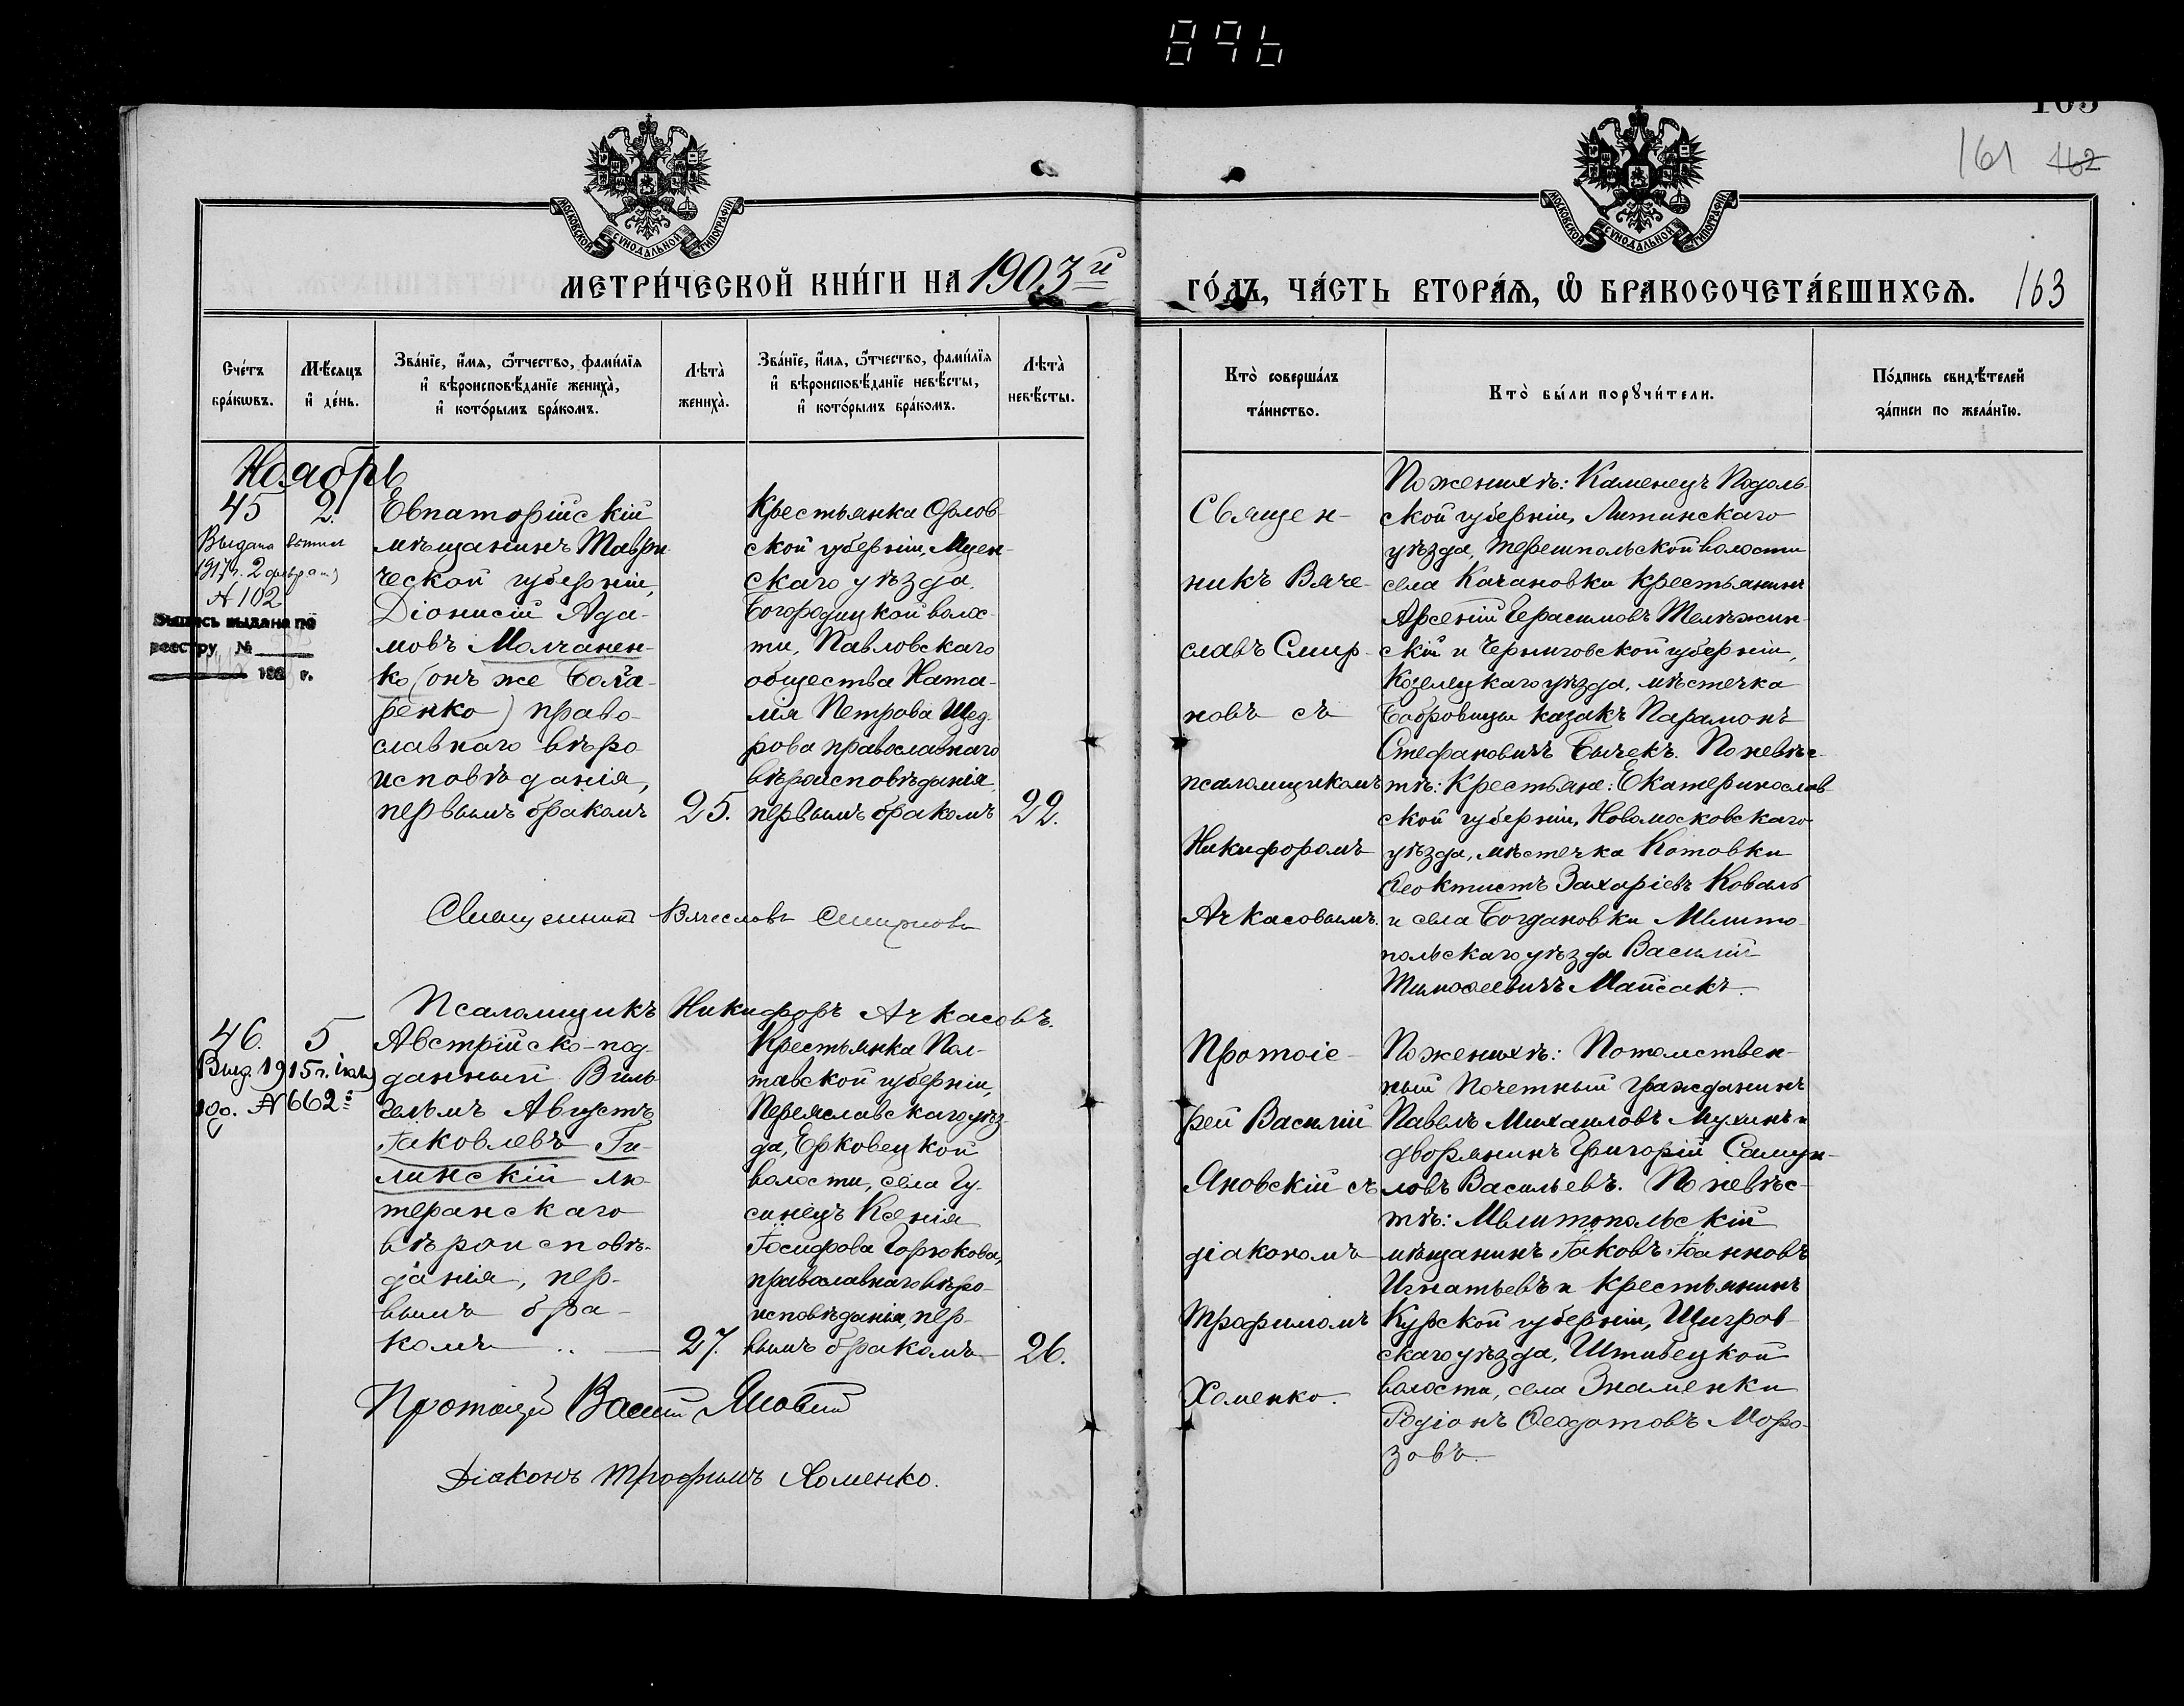 896
163
161 162
МОСКОВСКОЙ СѴНОДАЛЬНОЙ ТИПОГРАФІИ
МОСКОВСКОЙ СѴНОДАЛЬНОЙ ТИПОГРАФІИ
МЕТРИ́ЧЕСКОЙ КНИ́ГИ НА 1903й
ГО́ДЪ, ЧА́СТЬ ВТОРА́Ѧ, Ѽ БРАКОСОЧЕТА́ВШИХСѦ. 163
Сче́тъ бра́кѡвъ.
Мѣ́сяцъ и҆ де́нь.
Зва́нїе, и҆́мя, ѻ҆́тчество, фами́лїя
и҆ вѣроисповѣ́данїе жениха̀,
и҆ кото́рымъ бра́комъ.
Лѣта̀ жениха̀.
Зва́нїе, и҆́мя, ѻ҆́тчество, фами́лїя
и҆ вѣроисповѣ́данїе невѣ́сты,
и҆ кото́рымъ бра́комъ.
Лѣта̀ невѣ́сты.
Кто̀ соверша́лъ
та́инство.
Кто̀ бы́ли порꙋчи́тели.
По́дпись свидѣ́телей
за́писи по жела́нїю.
Ноябрь
45
2.
Выдана
1917г. 2 февра
№ 102
выдана по
реестру №
188 г.
Евпаторійскій
мѣщанинъ Таври
ческой губерніи,
Діонисій Ада-
мовъ Молчанен-
ко (онъ же Бонда-
ренко) право-
славнаго вѣро
исповѣданія,
первымъ бракомъ
25.
Крестьянка Орлов-
ской губерніи, Мцен-
скаго уѣзда,
Богородицкой волос-
ти, Павловскаго
общества Ната-
лія Петрова Щед-
рова православнаго
вѣроисповѣданія,
первымъ бракомъ
22.
Священ-
никъ Вяче-
славъ Смир-
новъ съ
псаломщикомъ
Никифоромъ
Ачкасовымъ.
По женихѣ: Каменецъ Подоль-
ской губерніи, Литинскаго
уѣзда, Терешпольской волости
села Качановки крестьянинъ
Арсеній Герасимовъ Телѣжин-
скій и Черниговской губерніи,
Козелецкаго уѣзда, мѣстечка
Бобровицы казакъ Парамонъ
Стефановичъ Бычекъ. По невѣс-
тѣ: Крестьяне: Екатеринослав-
ской губерніи, Новомосковскаго
уѣзда, мѣстечка Котовки
Ѳеоктистъ Захаріевъ Коваль
и села Богдановки Мелито-
польскаго уѣзда Василій
Тимоѳеевичъ Майсакъ.
Священникъ Вячеславъ Смирновъ
Псаломщикъ Никифоръ Ачкасовъ.
46.
5
Выд. 1915 г.
№ 662
Австрійско-под-
данный Виль-
гельмъ Августъ
Іаковлевъ Ги-
линскій лю-
теранскаго
вѣроисповѣ-
данія, пер-
вымъ бра-
комъ
27.
Крестьянка Пол-
тавской губерніи,
Переяславскаго уѣз-
да, Ерковецкой
волости, села Гу-
синецъ Ксенія
Іосифова Горюкова,
православнаго вѣро-
исповѣданія, пер-
вымъ бракомъ
26.
Протоіе-
рей Василій
Яновскій съ
діакономъ
Трофимомъ
Хоменко.
По женихѣ: Потомствен-
ный Почетный Гражданинъ
Павелъ Михаиловъ Мухинъ и
дворянинъ Григорій Самуи-
ловъ Васильевъ. По невѣс-
тѣ: Мелитопольскій
мѣщанинъ Іаковъ Іоанновъ
Игнатьевъ и крестьянинъ
Курской губерніи, Щигров-
скаго уѣзда, Штивецкой
волости, села Знаменки
Родіонъ Ѳеодотовъ Моро-
зовъ.
Протоіерей Василій Яновскій
Діаконъ Трофимъ Хоменко.